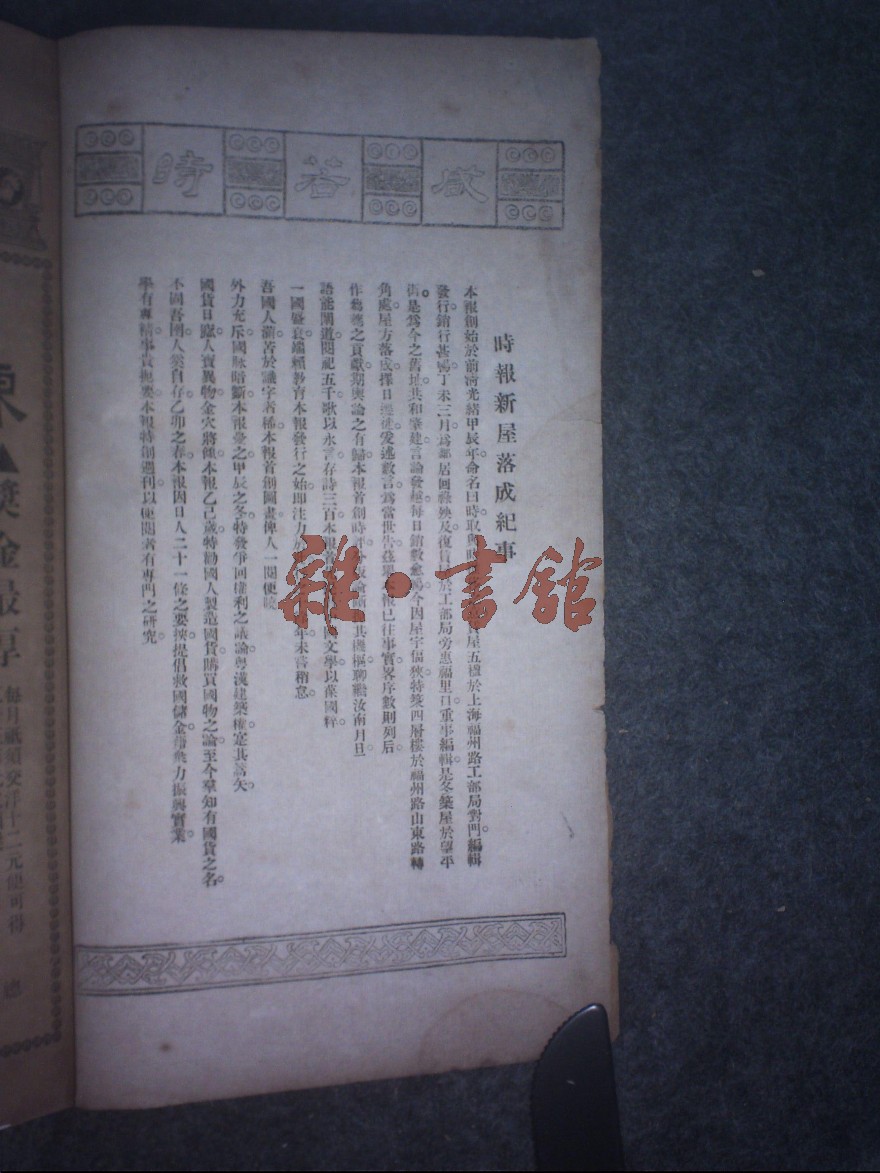 咸若時
時報新屋落成紀事
本報創始於前淸光緒甲辰年命名曰時取與時 賃屋五楹於上海福州路工部局對門編輯
發行銷行甚暢丁未三月爲鄰居回祿殃及復賃 於工部局旁惠福里口重事編輯是冬築屋於望平
街是爲今之舊址共和肇建言論發越每日銷數 今因屋宇偪狹特築四層樓於福州路山東路轉
角處屋方落成擇日遷徙爰述數言爲當世告 報已往事實畧序數則列后
作芻蕘之貢獻期輿論之有歸本報首創時評 其機樞聊繼汝南月旦
語能閒道閱祀五千歌以永言存詩三百本報 文學以葆國粹
一國盛衰端賴敎育本報發行之始即注力於 年未嘗稍怠
吾國人濡苦於識字者稀本報首創圖畫俾人一閱便曉
外力充斥國脉暗斷本報臺之甲辰之冬特發爭回權利之議論粵漢建築權寔其嚆矢
國貨日窳人寶異物金穴將傾本報乙巳歲特勸國人製造國貨購買國物之論至今羣知有國貨之名
不圖吾圉人爰自存乙卯之春本報因日人二十一條之要挾提倡救國儲金 力振興實業
學有專精事貴 要本報特創週刊以便閱者有專門之研究
雜·書館
獎金最厚
每月祇須交洋十二元便可得
總